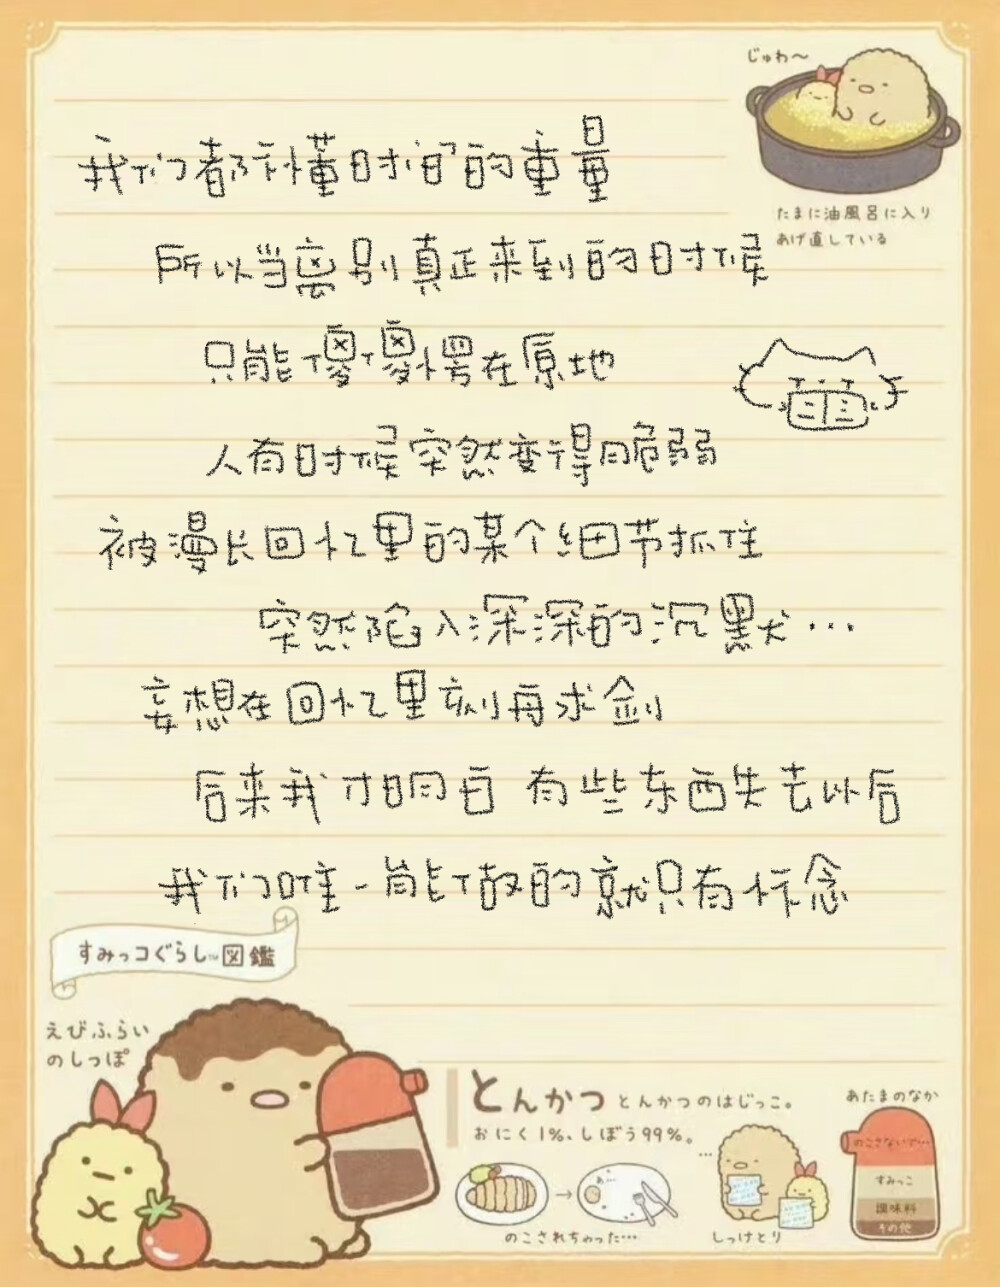 じゅわ〜
たまに油風呂に入り
あげ直している
我们都不懂时间的重量
所以当离别真正来到的时候
只能傻傻愣在原地
人有时候突然变得脆弱
被漫长回忆里的某个细节抓住
突然陷入深深的沉默…
妄想在回忆里刻舟求剑
后来我才明白 有些东西失去以后
我们唯一能做的就只有怀念
すみっコぐらし™図鑑
えびふらい
のしっぽ
とんかつ とんかつのはじっこ。
おにく1%、しぼう99%。
あ…
のこされちゃった…
…
しっけとり
あたまのなか
のこさないで…
すみっこ
調味料
その他